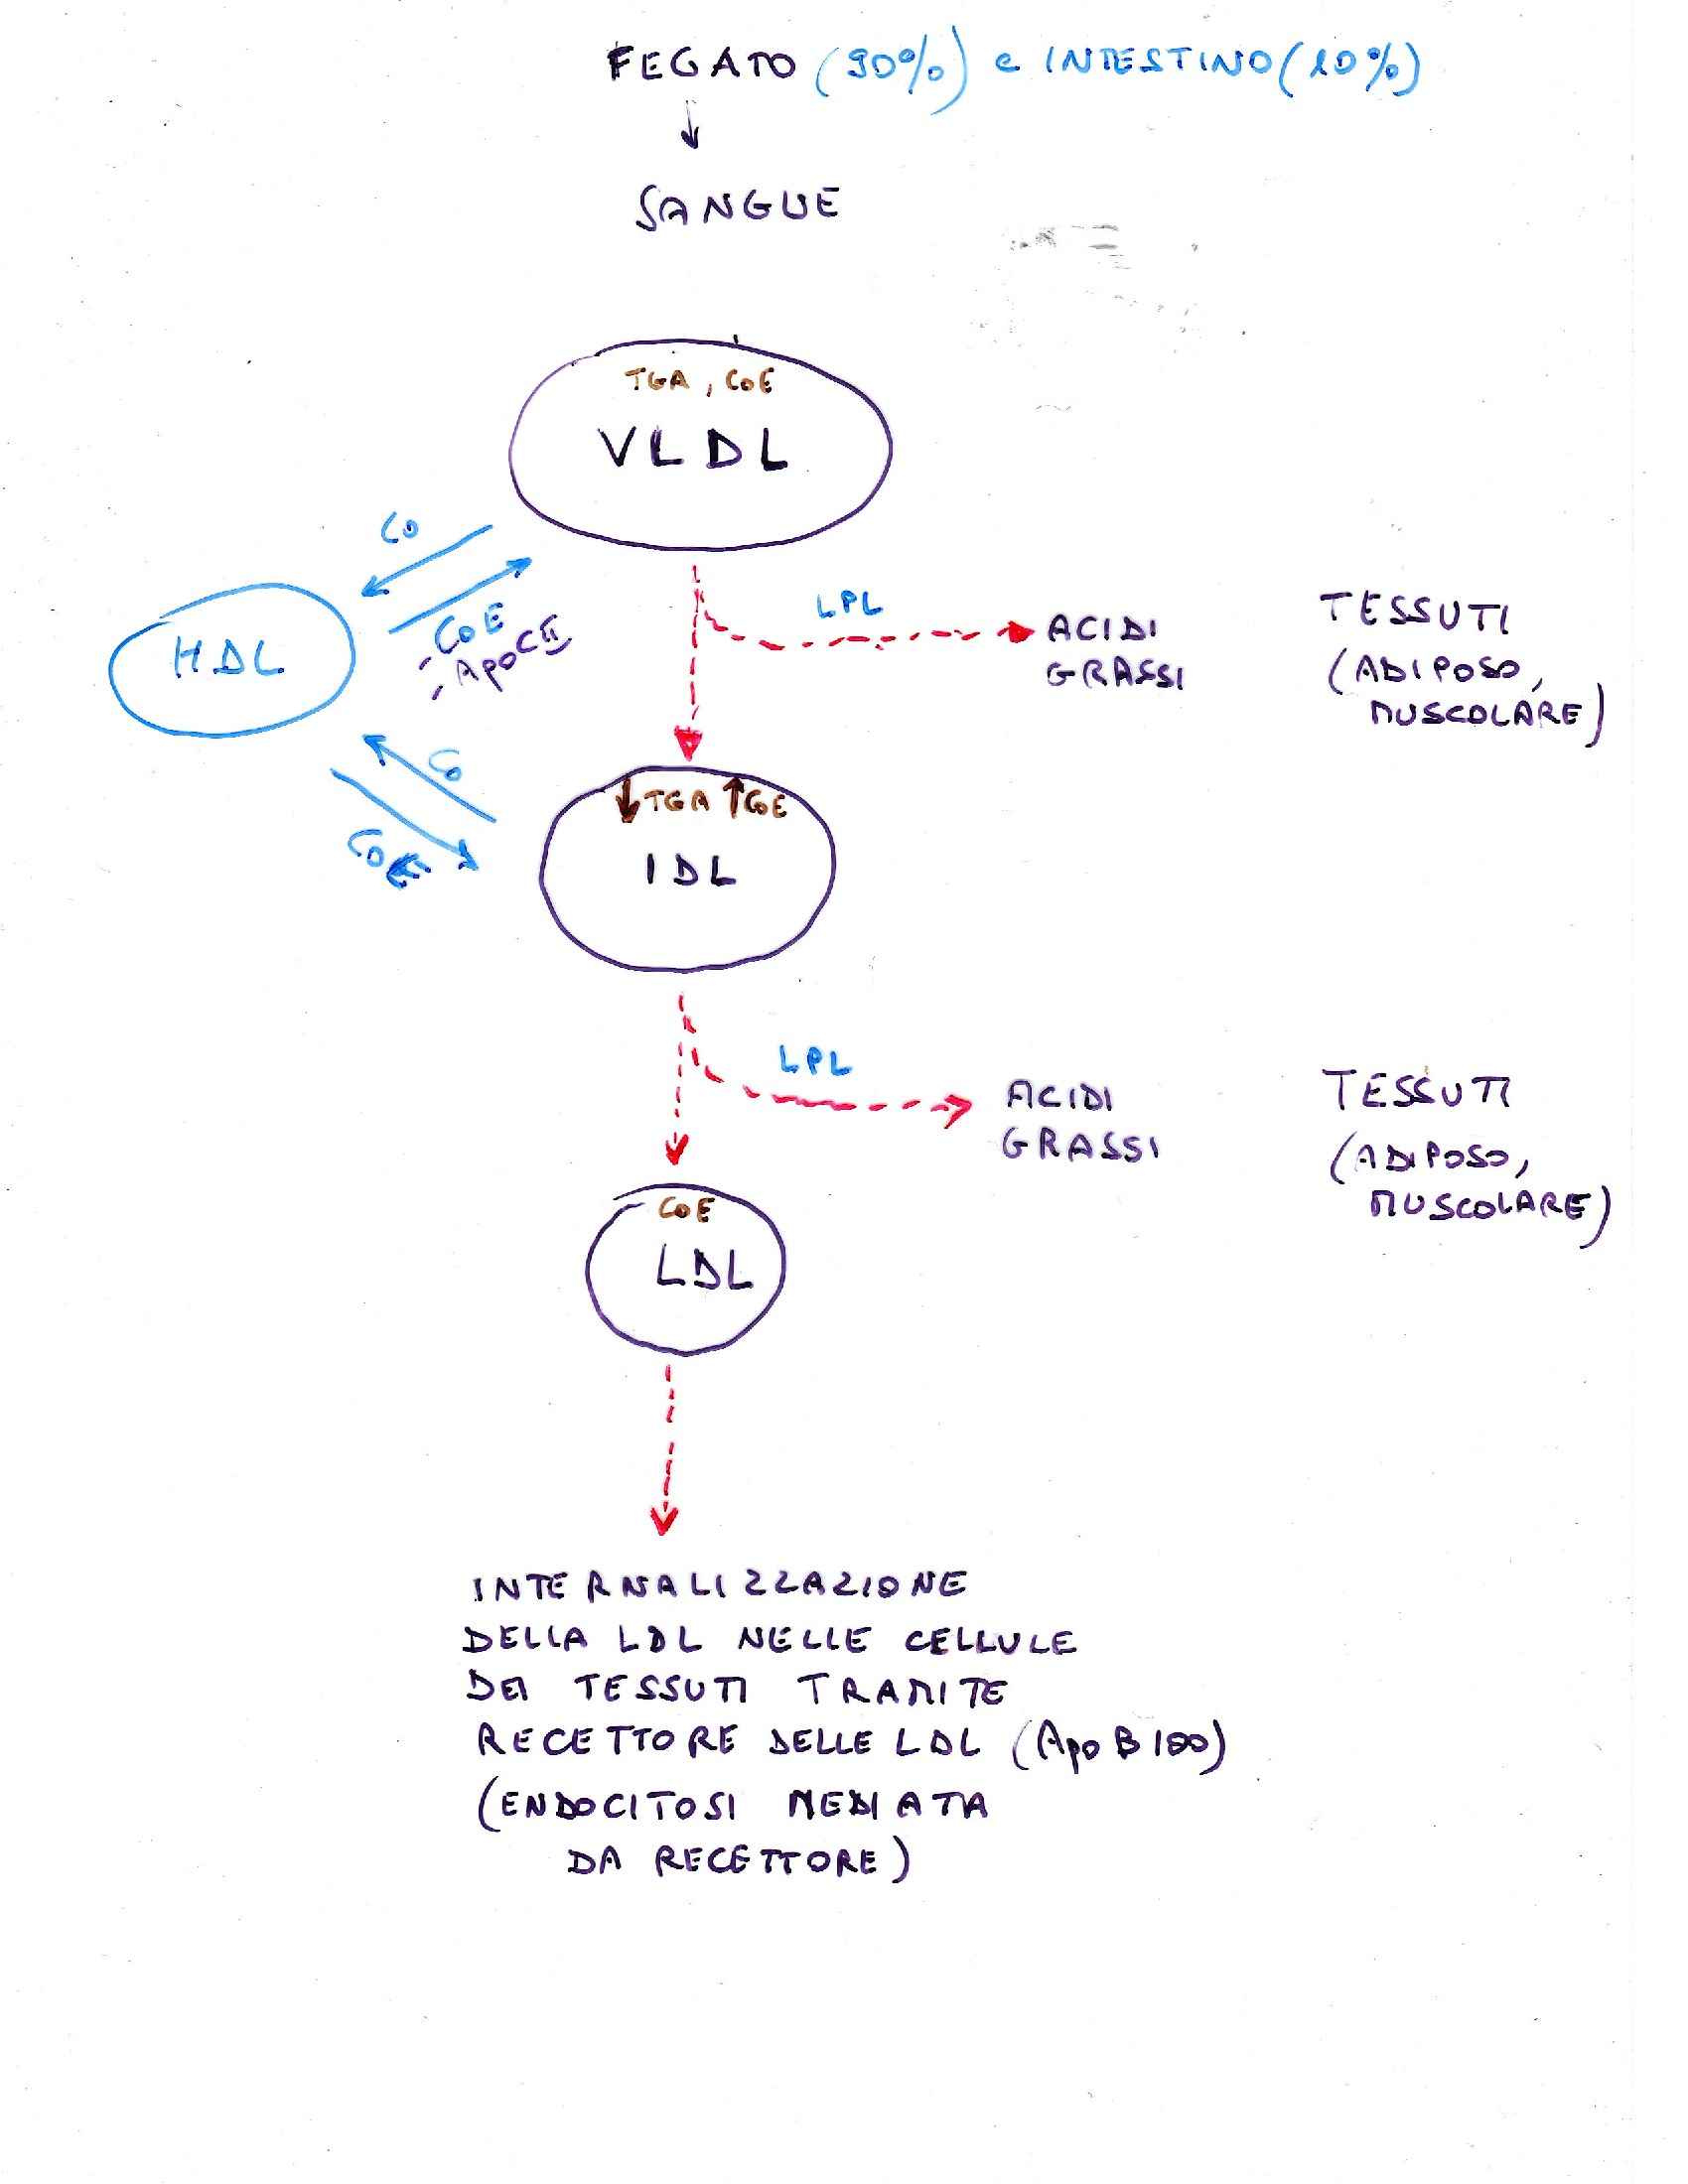 FEGATO (90%) e INTESTINO (10%)
SANGUE
TGA, CoE
VLDL
Co
CoE
- ApoCII
HDL
LPL
ACIDI
GRASSI
TESSUTI
(ADIPOSO,
MUSCOLARE)
Co
CoE
↓TGA ↑CoE
IDL
LPL
ACIDI
GRASSI
TESSUTI
(ADIPOSO,
MUSCOLARE)
CoE
LDL
INTERNALIZZAZIONE
DELLA LDL NELLE CELLULE
DEI TESSUTI TRAMITE
RECETTORE DELLE LDL (Apo B100)
(ENDOCITOSI MEDIATA
DA RECETTORE)